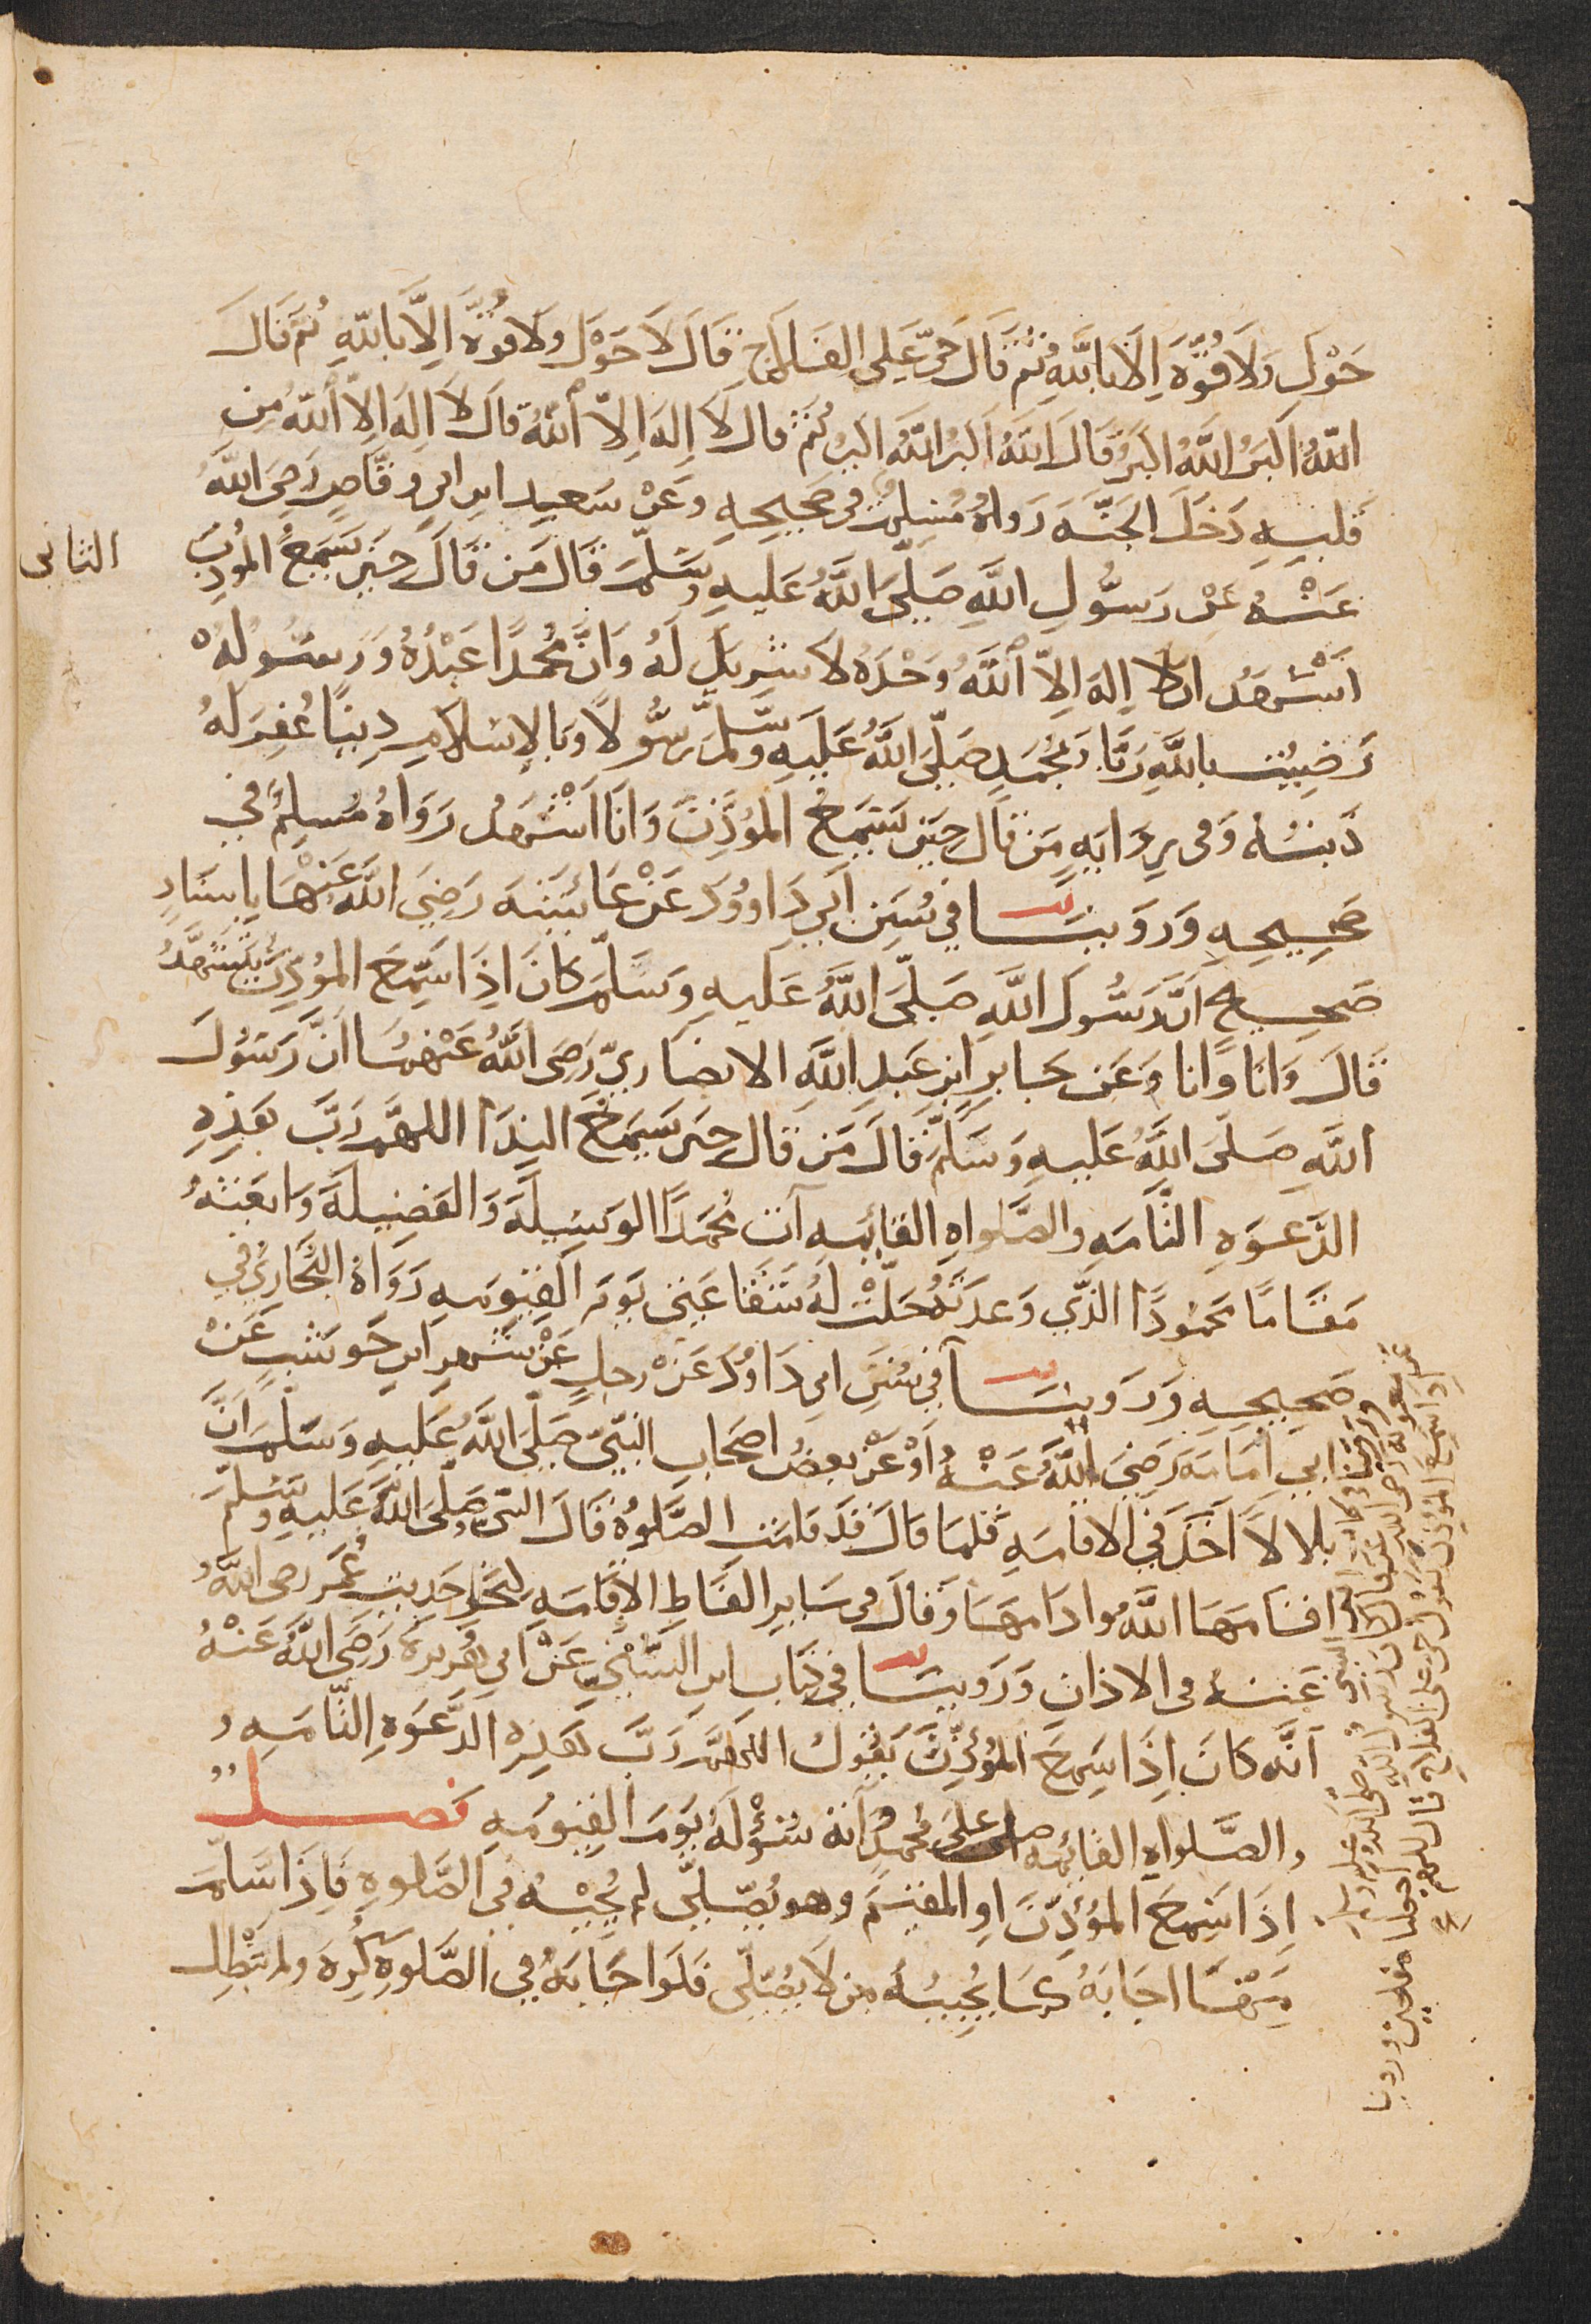 حَوْلَ وَلَا قُوَّةَ اِلَّا بِاللهِ ثُمَّ قَالَ حَيَّ عَلَى الفَلَاحِ قَالَ لَا حَوْلَ وَلَا قُوَّةَ اِلَّا بِاللهِ ثُمَّ قَالَ
اللهُ اَكْبَرُ اللهُ اكبَرُ قَالَ اللهُ اَكبَرُ اللهُ اكبَرُ ثُمَّ قال لَا اِلهَ اِلَّا اللهُ قَالَ لَا اِلهَ اِلَّا اللهُ مِن
قَلبِهِ دَخَلَ الجَنَّةَ رَواهُ مُسْلِمٌ في صَحِيحِهِ وعَنْ سَعيدِ ابن ابي وقَّاصٍ رَضِيَ اللهُ
عَنْهُ عَنْ رَسُولِ اللهِ صَلَّى اللهُ عَليهِ وسَلَّمَ قَالَ مَن قَالَ حِينَ يَسْمَعُ المُوذِّنَ
الثاني
اَشْهَدُ ان لا اِله اِلّا اللهُ وَحْدَهُ لا شَرِيكَ لَهُ وَانَّ مُحمدًا عَبْدُهُ وَرَسُولُهُ
رَضِيْتُ باللهِ رَبًّا وَبمُحَمدٍ صَلَّى اللهُ عَلَيهِ وسَلَّمَ رَسُولًا وبالاِسْلامِ دِينًا غُفِرَ لهُ
ذَنبُهُ وَفي رِوَايَهٍ مَن قَالَ حِينَ يَسْمَعُ المُؤَذِّنَ وَانَا اَشْهَدُ رَوَاهُ مُسلِمٌ في
صَحِيحِهِ وَرَوَينَا في سُنَنِ اَبي دَاووُدَ عَنْ عَائشَةَ رَضِيَ اللهُ عَنْهَا بِاِسنَادٍ
صَحيحٍ اَنَّ رَسُولَ اللهِ صَلَّى اللهُ عَليهِ وَسَلَّمَ كَانَ اِذَا سَمِعَ المُؤَذِّنَ يَتَشَهَّدُ
قَالَ وَانَا وَانا وَعَن جَابرِ ابنِ عَبدِ اللهِ الانصَاريّ رَضيَ اللهُ عَنْهمُا اَنَّ رَسُولَ
اللهِ صَلَّى اللهُ عَليهِ وَسَلَّمَ قَالَ مَن قَالَ حينَ يَسْمَعُ النِدَا اللهمَّ رَبَّ هَذِهِ
الدَّعوَهِ التَّامَهِ والصَّلواهِ القَائِمَهِ آتِ مُحَمدًا الوَسِيلَةَ وَالفَضِيلَةَ وَابعَثهُ
مَقَامًا مَحمُودًا الذَّي وَعدتَهُ حَلَّتْ لَهُ شَفَاعَتِي يَومَ القِيومَهِ رَوَاهُ البُخَارِيُّ في
صَحِيحِهِ وَرَوينَا في سُنَنِ ابي دَاوُدَ عَنْ رجلٍ عَنْ شَهرِ ابن حَوشَبٍ عَنْ
ابي اُمَامَه رَضِيَ اللهُ عَنْهُ اَوْ عَنْ بعضِ اصحَابِ النبّيّ صَلَّى اللهُ عَليهِ وَسَلَّمَ اَنَّ
بلالًا اَخَذَ فِي الاقَامَهِ فلمَا قَالَ قَد قَامَتِ الصَّلوُهُ قَالَ النبّيّ صَلَّى اللهُ عَليهِ وسَلَّمَ
اقَامَها اللهُ وادَامهَا وَقَالَ في سَايرِ الفَاظِ الاِقَامَهِ كنَحْوِ حَديثِ عُمَرَ رضى اللهُ
عَنهُ في الاذان وَرَوينَا في كِتَابِ ابن السُّنيّ عَنْ ابي هُرَيرَهَ رَضِيَ اللهُ عَنْهُ
اَنَّه كَانَ اِذَا سَمِعَ المُؤَذِّنَ يَقُولُ اللهُمَّ رَبَّ هَذِهِ الدَّعَوَهِ التَّامَهِ وَ
والصَّلواهِ القَائِمه صل على مُحمدٍ وآته سُؤْلَهُ يَومَ القِيومَهِ فصل
اِذَا سَمِعَ المُؤَذِّنَ اوِ المُقِيْمَ وهو يُصَلِّى لم يُجِبْهُ في الصَّلوهِ فَاِذَا سَلَّمَ
مِنْهَا اجَابَهُ كَمَا يُجِيبُهُ مَن لَا يُصَلِّي فَلَو اجَابَهُ في الصَّلوَه كُرِهَ ولم تَبْطُل
وروينا في كتاب ابن السني
عن معويه رضى الله عنه قال كان رسول الله صلى الله عليه وسلم
اذا سمع المؤذن يقول حي على الفلاح قال اللهم اجعلنا مفلحين وروينا